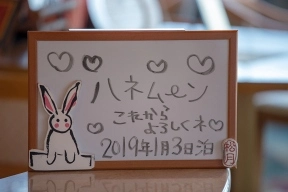 ハネムーン
これから
よろしくネ♡
2019年1月3日泊